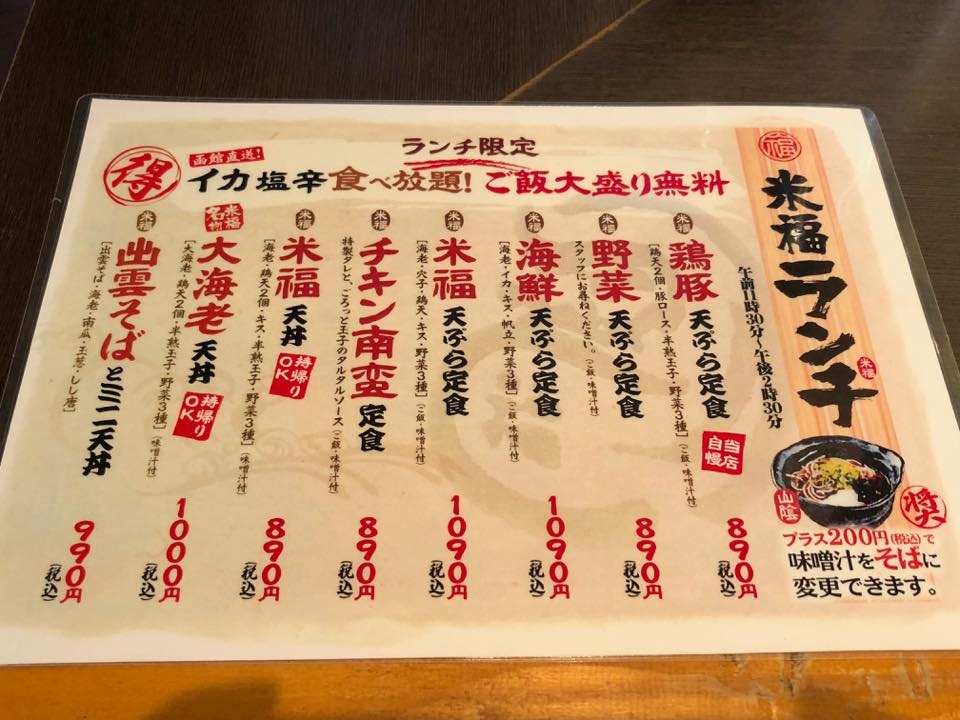 福
米福ランチ
米福
午前11時30分〜午後2時30分
山陰
奨
プラス200円(税込)で
味噌汁をそばに
変更できます。
ランチ限定
得
函館直送!
イカ塩辛食べ放題!ご飯大盛り無料
米福
鶏豚天ぷら定食
[鶏天2個・豚ロース・半熟玉子・野菜3種](ご飯・味噌汁付)
当店自慢
890円
(税込)
米福
野菜天ぷら定食
スタッフにお尋ねください。(ご飯・味噌汁付)
890円
(税込)
米福
海鮮天ぷら定食
[海老・イカ・キス・帆立・野菜3種](ご飯・味噌汁付)
1090円
(税込)
米福
米福天ぷら定食
[海老・穴子・鶏天・キス・野菜3種](ご飯・味噌汁付)
1090円
(税込)
米福
チキン南蛮定食
特製タレと、ごろっと玉子のタルタルソース(ご飯・味噌汁付)
890円
(税込)
米福
米福天丼
[海老・鶏天2個・キス・半熟玉子・野菜3種](味噌汁付)
持帰りOK
890円
(税込)
米福名物
大海老天丼
[大海老・鶏天2個・半熟玉子・野菜3種](味噌汁付)
持帰りOK
1000円
(税込)
米福
出雲そばとミニ天丼
[出雲そば・海老・南瓜・玉葱・しし唐]
990円
(税込)